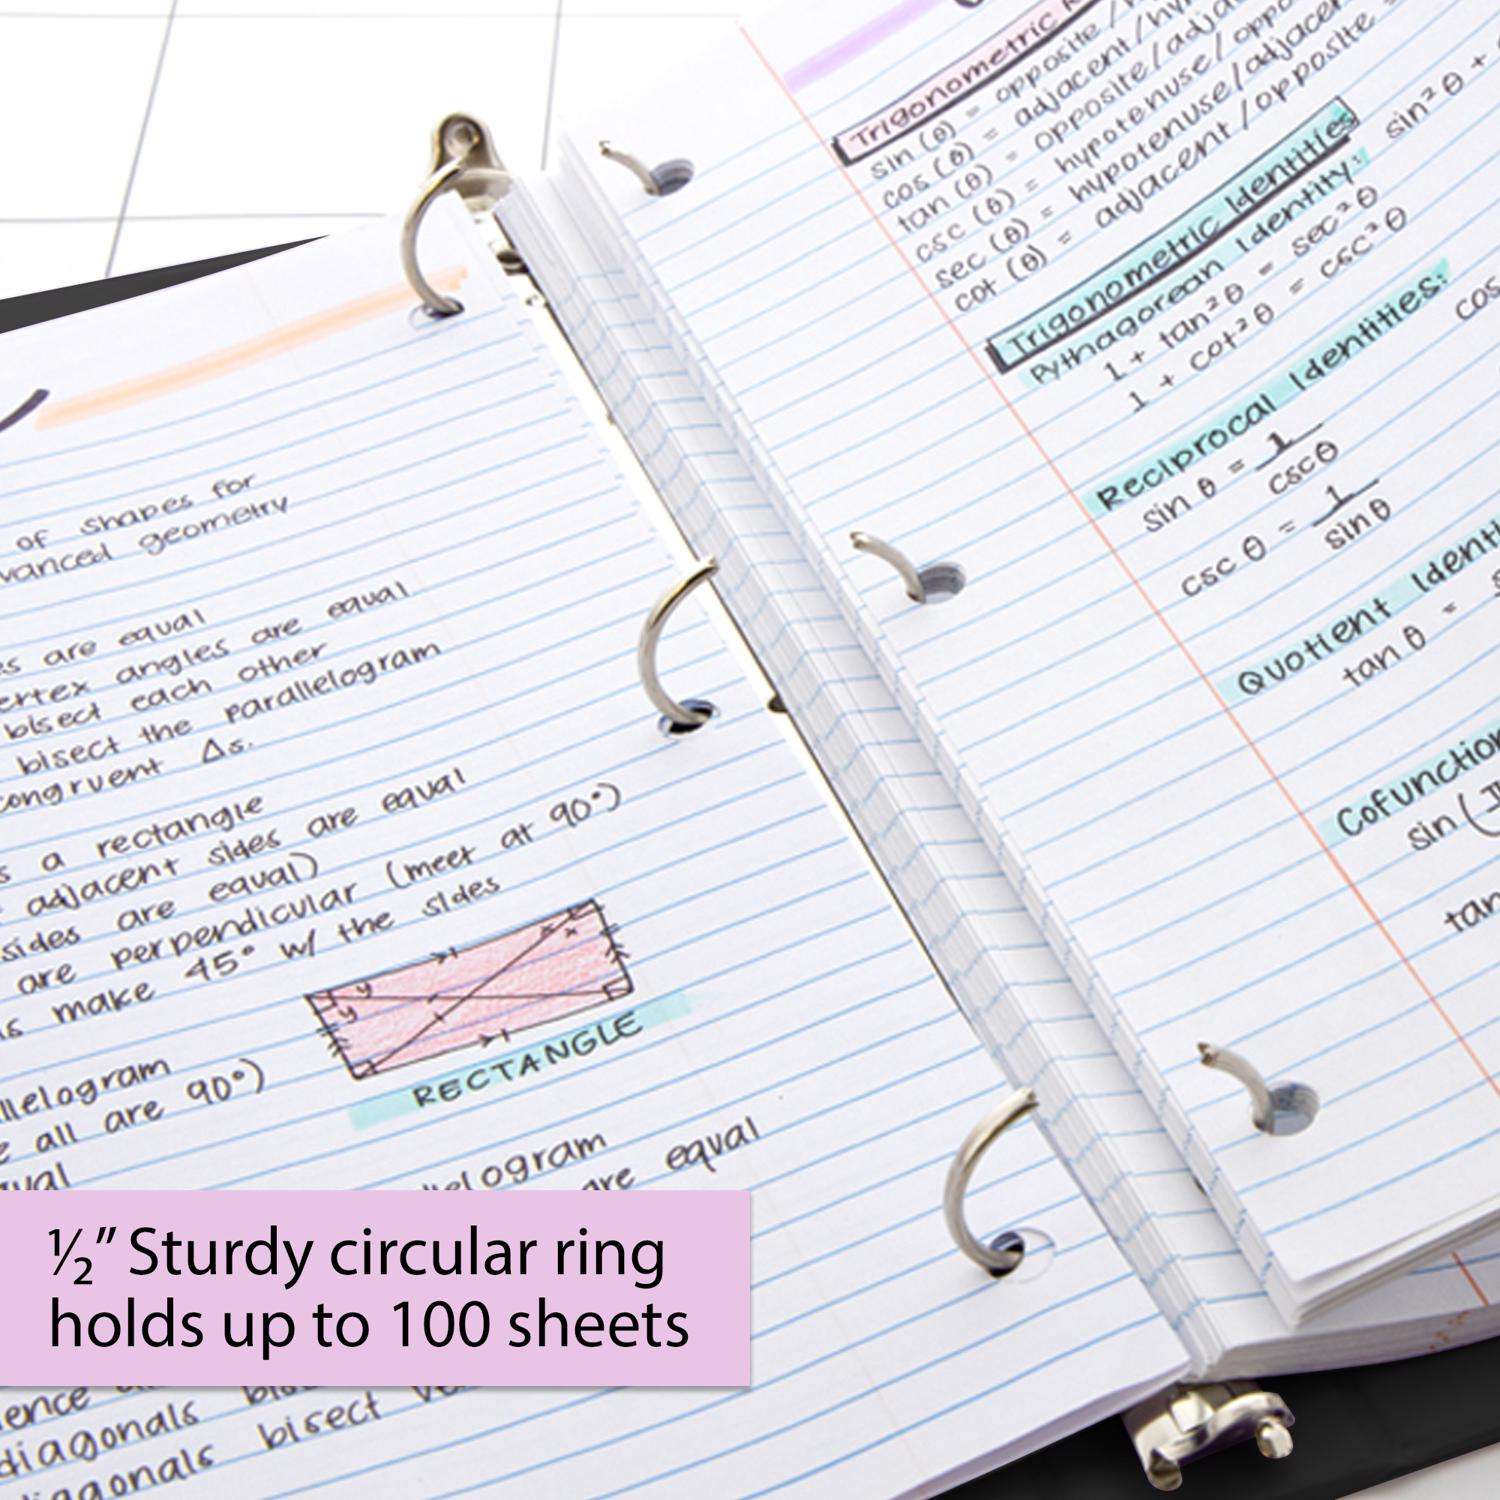 of shapes for
geometry
are equal
angles are equal
bisect each other
bisect the parallelogram
congruent Δs.
a rectangle
adjacent sides are equal
sides are equal)
are perpendicular (meet at 90°)
make 45° w/ the sides
RECTANGLE
all are 90°)
are equal
diagonals
diagonals bisect
Trigonometric
sin (θ) = opposite /
cos (θ) = adjacent / hy
tan (θ) = opposite / adja
csc (θ) = hypotenuse / oppo
sec (θ) = hypotenuse / adjacen
cot (θ) = adjacent / opposite
Trigonometric Identities
Pythagorean Identity: sin²θ +
1 + tan²θ = sec²θ
1 + cot²θ = csc²θ
Reciprocal Identities:
sin θ = 1/cscθ cos
csc θ = 1/sinθ
Quotient Identi
tan θ =
Cofunction
sin (
tan
½” Sturdy circular ring
holds up to 100 sheets